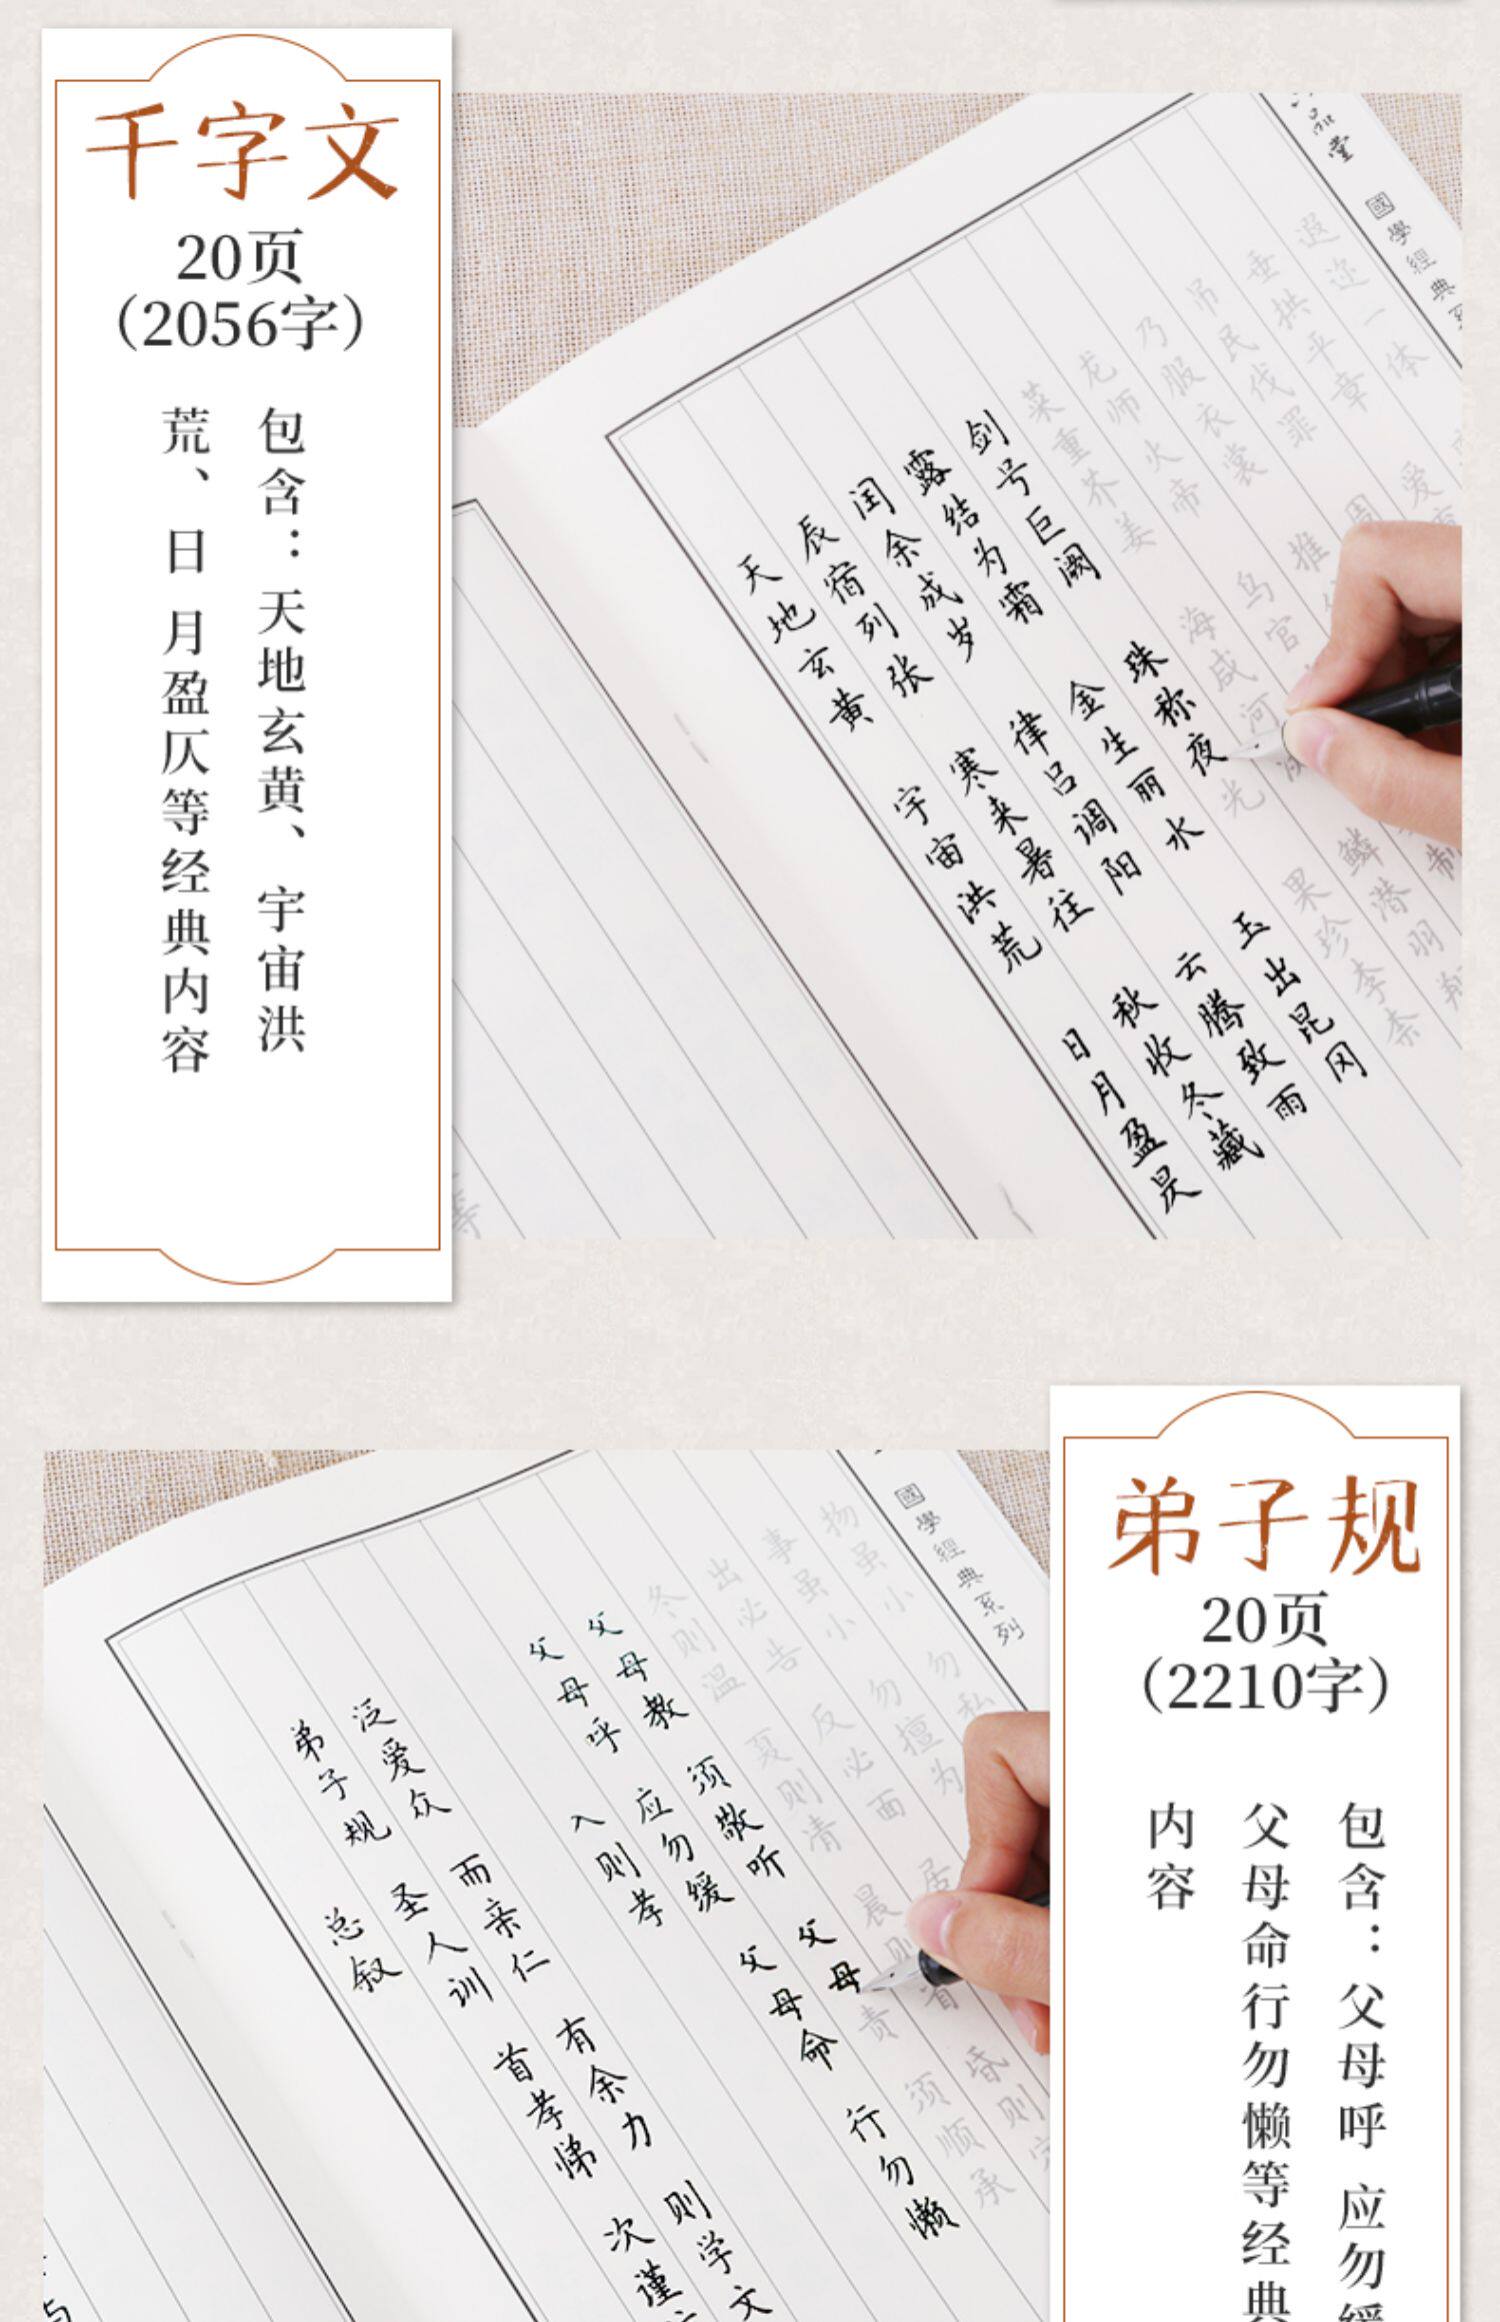 千字文
20页
（2056字）
包含：天地玄黄、宇宙洪
荒、日 月盈仄等经典内容
品堂 國學經典系
天地玄黄 宇宙洪荒 日月盈昃
辰宿列张 寒来暑往 秋收冬藏
闰余成岁 律吕调阳 云腾致雨
露结为霜 金生丽水 玉出昆冈
剑号巨阙 珠称夜光 果珍李柰
菜重芥姜 海咸河 鳞潜羽翔
龙师火帝 鸟官 制
乃服衣裳 推
吊民伐罪 周
垂拱平章 爱
遐迩一体
弟子规
20页
（2210字）
包含：父母呼 应勿缓
父母命行勿懒等经典
内容
國學經典系列
弟子规 总叙
圣人训 首孝悌 次谨
泛爱众 而亲仁 有余力 则学文
入则孝
父母呼 应勿缓 父母命 行勿懒
父母教 须敬听 父母责 须顺承
冬则温 夏则凊 晨则省 昏则定
出必告 反必面 居
事虽小 勿擅为
物虽小 勿私